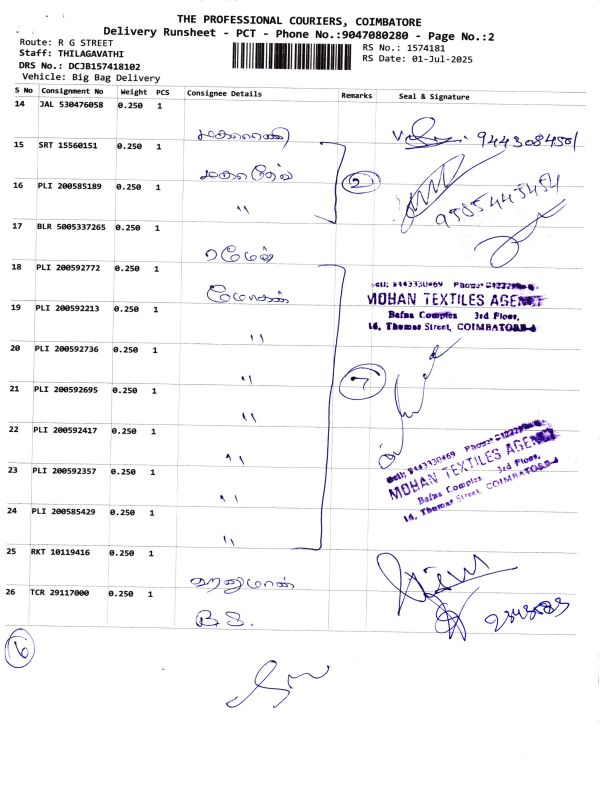 THE PROFESSIONAL COURIERS, COIMBATORE
Delivery Runsheet - PCT - Phone No.:9047080280 - Page No.:2
Route: R G STREET
RS No.: 1574181
Staff: THILAGAVATHI
RS Date: 01-Jul-2025
DRS No.: DCJB157418102
Vehicle: Big Bag Delivery
S No Consignment No Weight PCS Consignee Details Remarks Seal & Signature
14 JAL 530476058 0.250 1
9443084501
15 SRT 15560151 0.250 1
16 PLI 200585189 0.250 1 " 2
9585445454
17 BLR 5005337265 0.250 1
ரமேஷ்
18 PLI 200592772 0.250 1
மோகன்
MOHAN TEXTILES AGENCY
Bafna Complex 3rd Floor,
16, Thomas Street, COIMBATORE-1
19 PLI 200592213 0.250 1 "
20 PLI 200592736 0.250 1 "
7
21 PLI 200592695 0.250 1 "
22 PLI 200592417 0.250 1 "
MOHAN TEXTILES AGENCY
Bafna Complex 3rd Floor,
16, Thomas Street, COIMBATORE-1
23 PLI 200592357 0.250 1 "
24 PLI 200585429 0.250 1 "
25 RKT 10119416 0.250 1
ஹனுமான்
26 TCR 29117000 0.250 1
B.S.
6